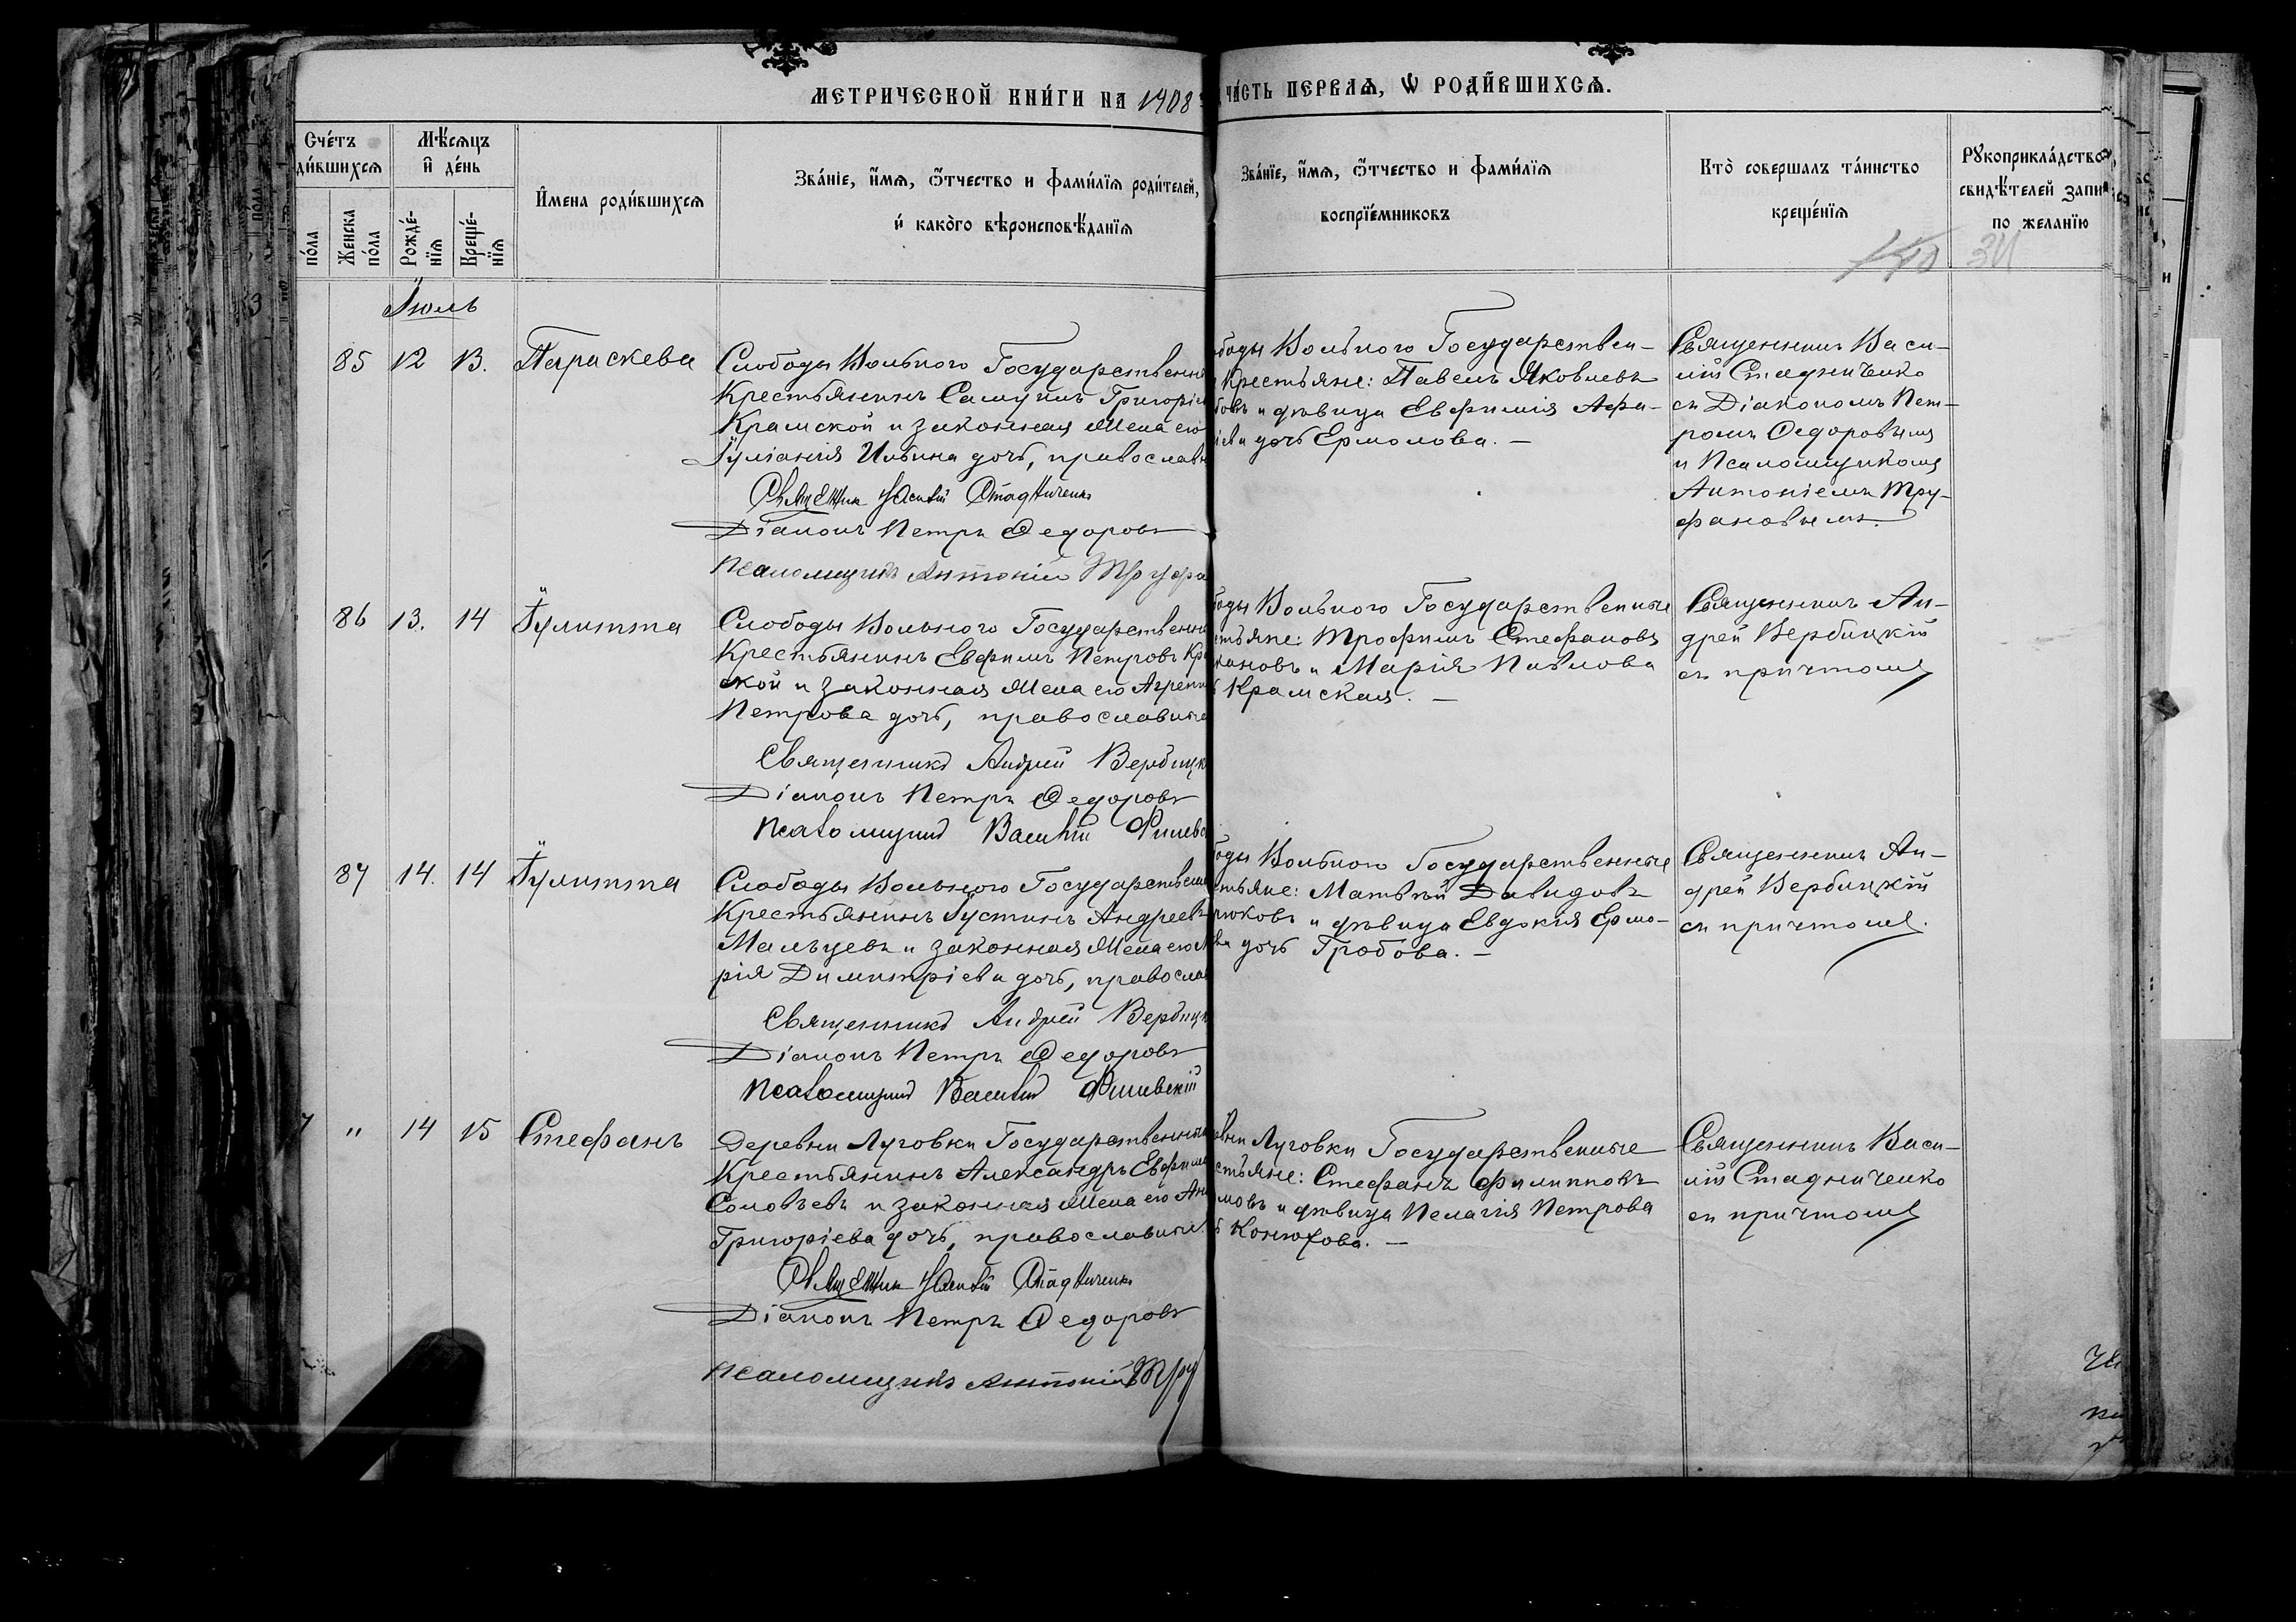 МЕТРИЧЕСКОЙ КНИ́ГИ НА 1908
ЧА́СТЬ ПЕРВАѦ, Ѡ РОДИ́ВШИХСѦ.
Сче́тъ
ди́вшихсѧ
по́ла
Женска
по́ла
Мѣ́сѧцъ
и де́нь
Рожде́-
нїѧ
Креще́-
нїѧ
И҆мена роди́вшихсѧ
Зва́нїе, и҆́мѧ, ѻ҆́тчество и фами́лїѧ роди́телей,
и҆ како́гѡ вѣроисповѣ́данїѧ
Зва́нїе, и҆́мѧ, ѻ҆́тчество и фами́лїѧ
воспрїе́мниковъ
Кто̀ совершалъ та́инство
креще́нїѧ
Рꙋкоприкла́дство
свидѣ́телей запи
по жела́нїю
Іюль
85 12 13. Параскева
Слободы Вольного Государственн
Крестьянинъ Самуилъ Григорі
Крамской и законная жена его
Іуліанія Ильина дочь, православн
Священник Василій Стадниченко
Діаконъ Петръ Федоровъ
Псаломщикъ Антоній Труфа
боды Вольного Государствен-
Крестьяне: Павелъ Яковлевъ
бовъ и дѣвица Евфимія Афа-
іева дочь Ермолова. —
Священникъ Васи-
лій Стадниченко
съ Діакономъ Пет-
ромъ Федоровымъ
и Псаломщикомъ
Антоніемъ Тру-
фановымъ.
86 13. 14 Іулитта
Слободы Вольного Государственн
Крестьянинъ Евфимъ Петровъ Кра
ской и законная жена его Агрепи
Петрова дочь, православные
Священникъ Андрей Вербицк
Діаконъ Петръ Федоровъ
Псаломщикъ Василій Филевс
боды Вольного Государственные
стьяне: Трофимъ Стефановъ
кановъ и Марія Павлова
ь Крамская. —
Священникъ Ан-
дрей Вербицкій
съ причтомъ
87 14. 14 Іулитта
Слободы Вольного Государствен
Крестьянинъ Іустинъ Андреевъ
Мальцевъ и законная жена его М
рія Димитріева дочь, правосла
Священникъ Андрей Вербицк
Діаконъ Петръ Федоровъ
Псаломщикъ Василій Филевскій
боды Вольного Государственные
стьяне: Матвѣй Давидовъ
рюковъ и дѣвица Евдокія Ермо-
ва дочь Гробова. —
Священникъ Ан-
дрей Вербицкій
съ причтомъ.
7 " 14 15 Стефанъ
Деревни Луговки Государственны
Крестьянинъ Александръ Евфимі
Соловьевъ и законная жена его Ан
Григоріева дочь, православные.
Священник Василій Стадниченко
Діаконъ Петръ Федоровъ
Псаломщикъ Антоній Тру
евни Луговки Государственные
стьяне: Стефанъ Филипповъ
мовъ и дѣвица Пелагія Петрова
ь Конюхова. —
Священникъ Васи-
лій Стадниченко
съ причтомъ